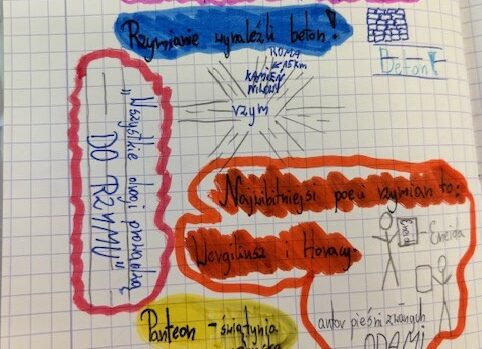 Rzymianie wynaleźli beton!
Beton!
ROMA
15 km
KAMIEŃ
MILOWY
rzym
„Wszystkie drogi prowadzą
DO RZYMU"
Najwibitniejsi poeci rzymian to:
Wergiliusz i Horacy.
Eneida
- Eneida
autor pieśni zwanych
ODAMI
Panteon - świątynia